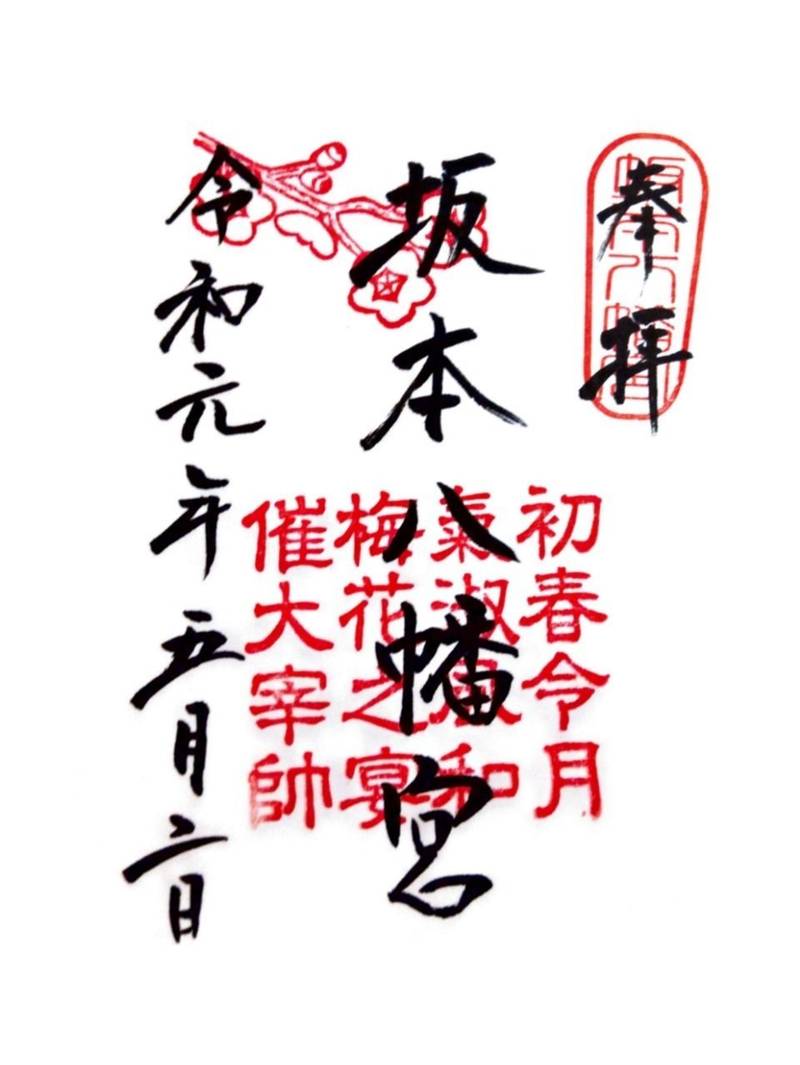 奉拝
初春令月
氣淑風和
坂本八幡宮
梅花之宴
催大宰帥
令和元年五月二日